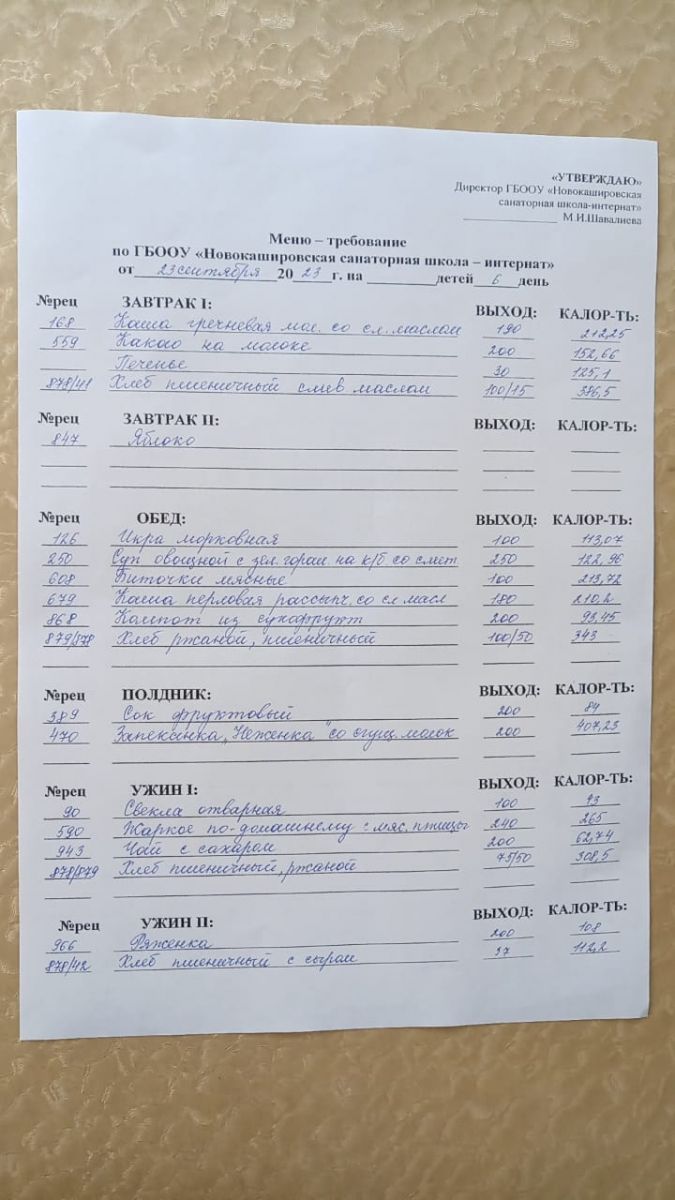 «УТВЕРЖДАЮ»
Директор ГБООУ «Новокашировская
санаторная школа-интернат»
_______________ М.И.Шавалиева
Меню – требование
по ГБООУ «Новокашировская санаторная школа – интернат»
от 23 сентября 20 23 г. на ________ детей 6 день
№рец ЗАВТРАК I: ВЫХОД: КАЛОР-ТЬ:
168 Каша гречневая мол. со сл. маслом 190 212,25
559 Какао на молоке 200 152,66
Печенье 30 125,1
878/41 Хлеб пшеничный слив маслом 100/15 376,5
№рец ЗАВТРАК II: ВЫХОД: КАЛОР-ТЬ:
847 Яблоко
№рец ОБЕД: ВЫХОД: КАЛОР-ТЬ:
126 Икра морковная 100 113,07
250 Суп овощной с зел. горош. на к/б со смет 250 122,96
608 Биточки мясные 100 213,72
679 Каша перловая рассыпч. со сл. масл 180 210,2
868 Компот из сухофрукт 200 93,45
879/878 Хлеб ржаной, пшеничный 100/50 343
№рец ПОЛДНИК: ВЫХОД: КАЛОР-ТЬ:
389 Сок фруктовый 200 84
470 Запеканка „Неженка" со сгущ. молок 200 407,23
№рец УЖИН I: ВЫХОД: КАЛОР-ТЬ:
90 Свекла отварная 100 93
590 Жаркое по-домашнему с мяс. птицы 240 265
943 Чай с сахаром 200 62,74
878/879 Хлеб пшеничный, ржаной 75/50 308,5
№рец УЖИН II: ВЫХОД: КАЛОР-ТЬ:
966 Ряженка 200 108
878/42 Хлеб пшеничный с сыром 37 112,2